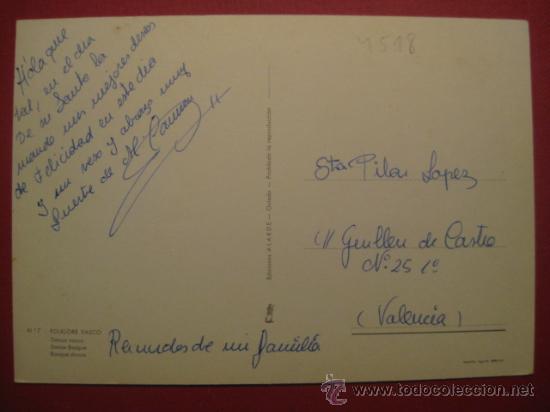 Hola que
tal, en el dia
De su Santo la
mando mis mejores deseos
de Felicidad en este dia
Y un veso Y abrazo muy
fuerte de Mª Carmen
4518
Sta Pilar Lopez
C/ Guillen de Castro
Nº 25 1º
(Valencia)
Recuerdos de mi familia
Ediciones ALARDE - Oviedo - Prohibida la reproducción
Nº 7 - FOLKLORE VASCO
Danza vasca
Danse Basque
Basque dance
todocoleccion.net